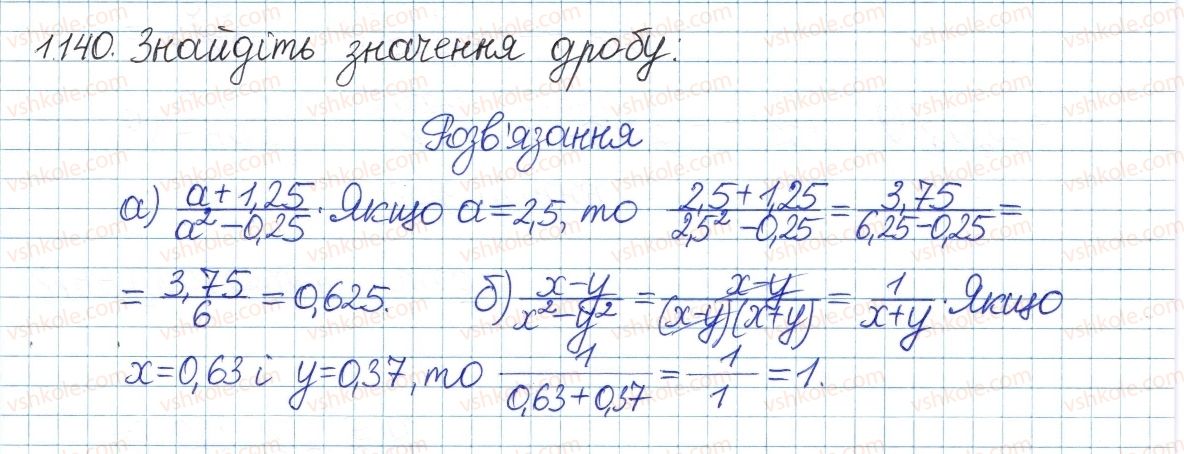 1140. Знайдіть значення дробу:
Розв'язання
а) (a+1,25)/(a²-0,25). Якщо a=2,5, то (2,5+1,25)/(2,5²-0,25) = 3,75/(6,25-0,25) =
= 3,75/6 = 0,625. б) (x-y)/(x²-y²) = (x-y)/((x-y)(x+y)) = 1/(x+y). Якщо
x=0,63 і y=0,37, то 1/(0,63+0,37) = 1/1 = 1.